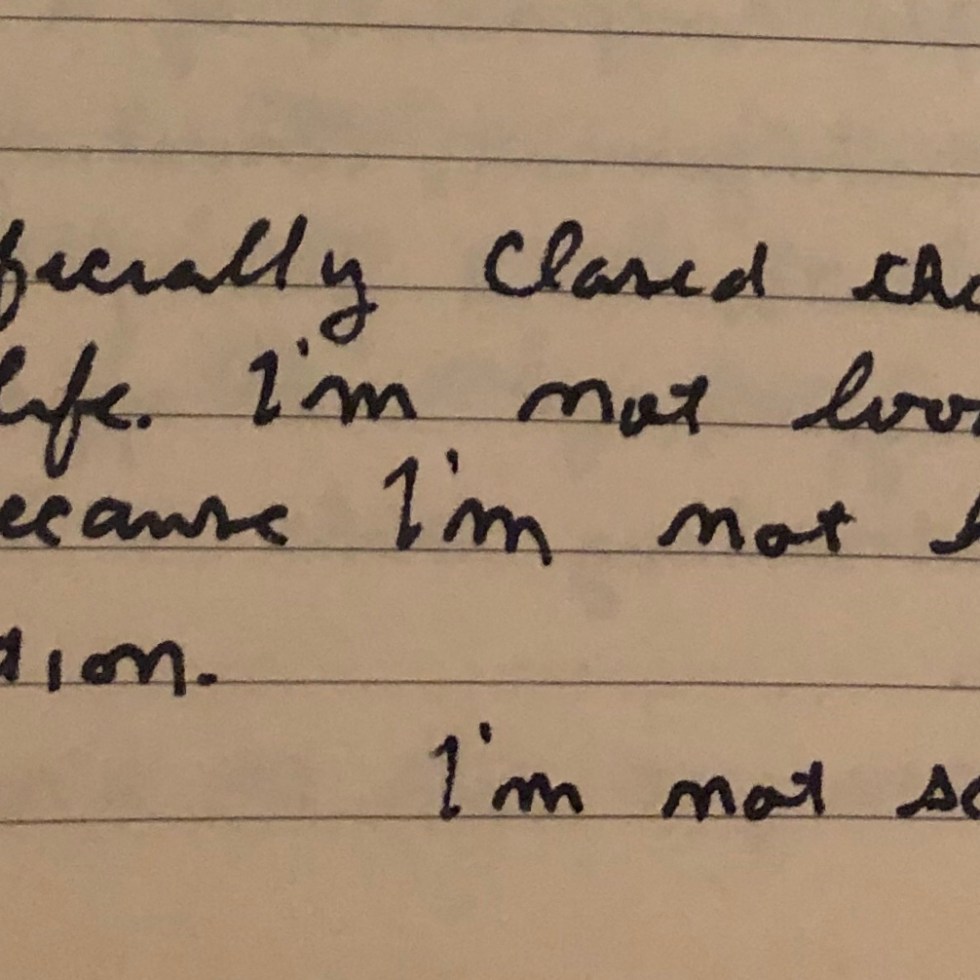 ficially closed the
life. I'm not loo
ecause I'm not
tion.
I'm not so